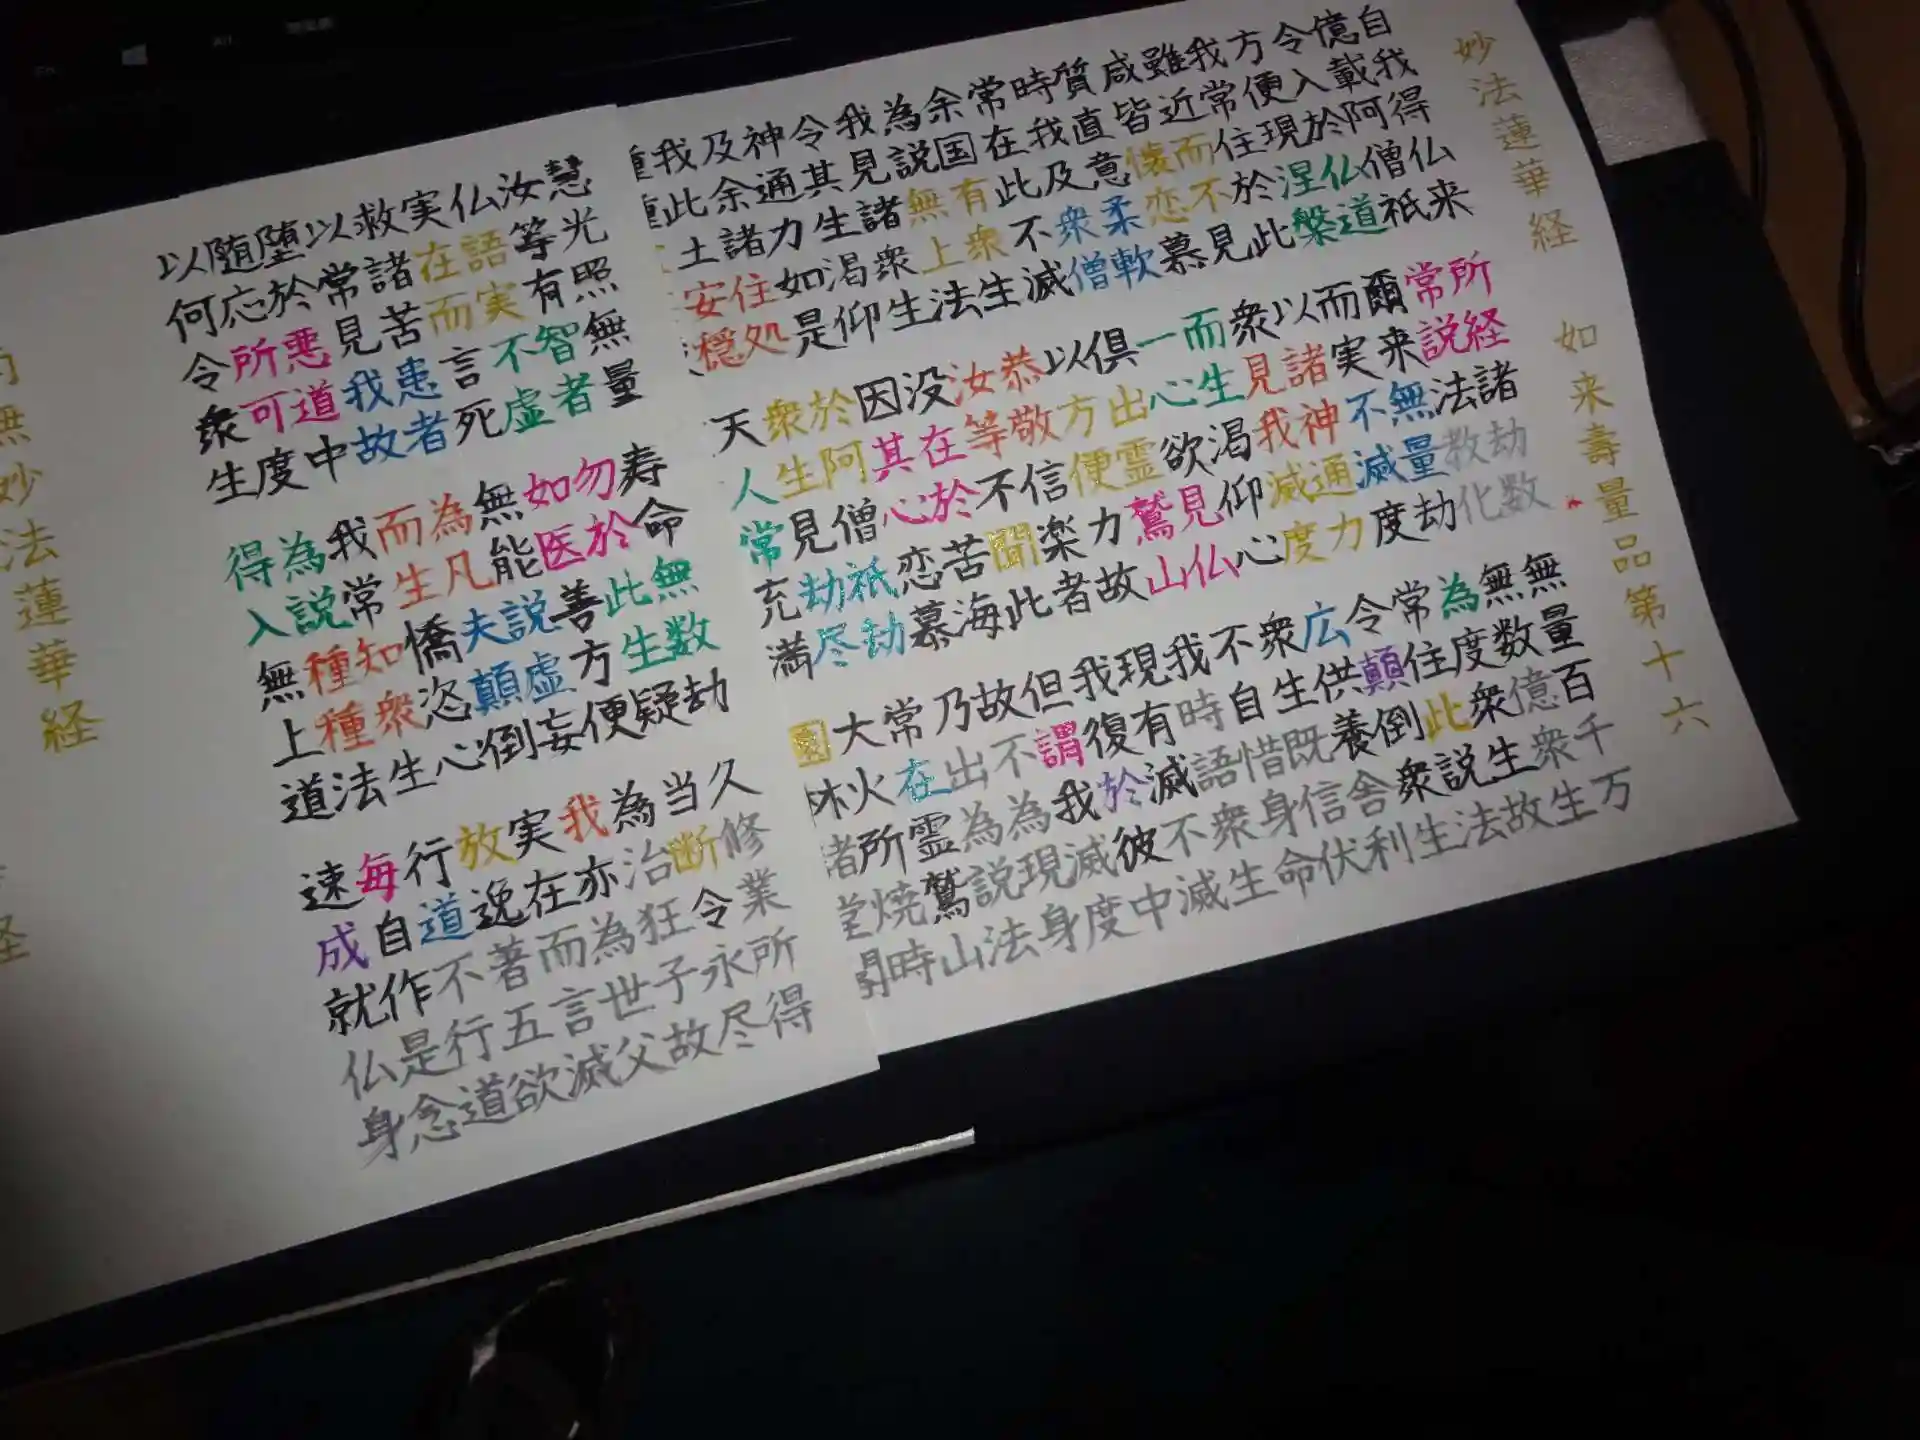 妙法蓮華経 如来壽量品第十六
自我得仏来 所経諸劫数 無量百千万
億載阿僧祇 常説法教化 無数億衆生
令入於仏道 爾来無量劫 為度衆生故
方便現涅槃 而実不滅度 常住此説法
我常住於此 以諸神通力 令顛倒衆生
雖近而不見 衆見我滅度 広供養舎利
咸皆懐恋慕 而生渇仰心 衆生既信伏
質直意柔軟 一心欲見仏 不自惜身命
時我及衆僧 倶出霊鷲山 我時語衆生
常在此不滅 以方便力故 現有滅不滅
余国有衆生 恭敬信楽者 我復於彼中
為説無上法 汝等不聞此 但謂我滅度
我見諸衆生 没在於苦海 故不為現身
令其生渇仰 因其心恋慕 乃出為説法
神通力如是 於阿僧祇劫 常在霊鷲山
及余諸住処 衆生見劫尽 大火所焼時
我此土安穏 天人常充満 園林
慧光照無量 寿命無数劫 久修業所得
汝等有智者 勿於此生疑 当断令永尽
仏語実不虚 如医善方便 為治狂子故
実在而言死 無能説虚妄 我亦為世父
救諸苦患者 為凡夫顛倒 実在而言滅
以常見我故 而生憍恣心 放逸著五欲
堕於悪道中 我常知衆生 行道不行道
随応所可度 為説種種法 毎自作是念
以何令衆生 得入無上道 速成就仏身
無妙法蓮華経